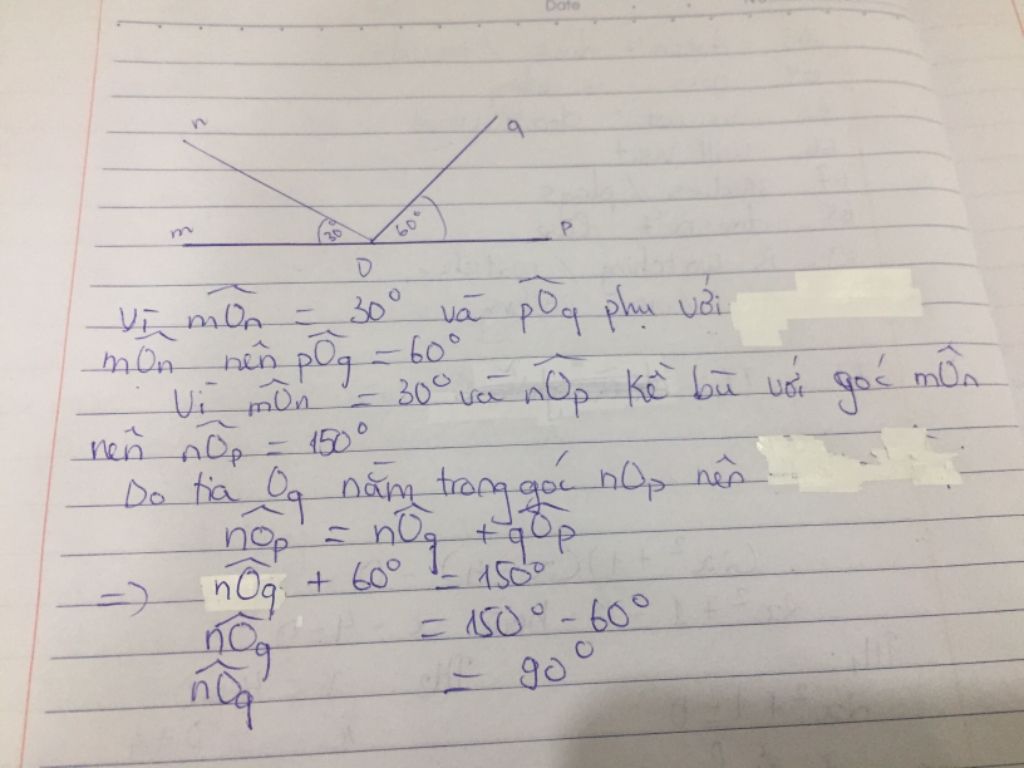 Date
n
q
m
30°
60°
P
O
Vì mÔn = 30° và pÔq phụ với
mÔn nên pÔq = 60°
Vì mÔn = 30° và nÔp kề bù với góc mÔn
nên nÔp = 150°
Do tia Oq nằm trong góc nOp nên
nÔp = nÔq + qÔp
=> nÔq + 60° = 150°
nÔq = 150° - 60°
nÔq = 90°